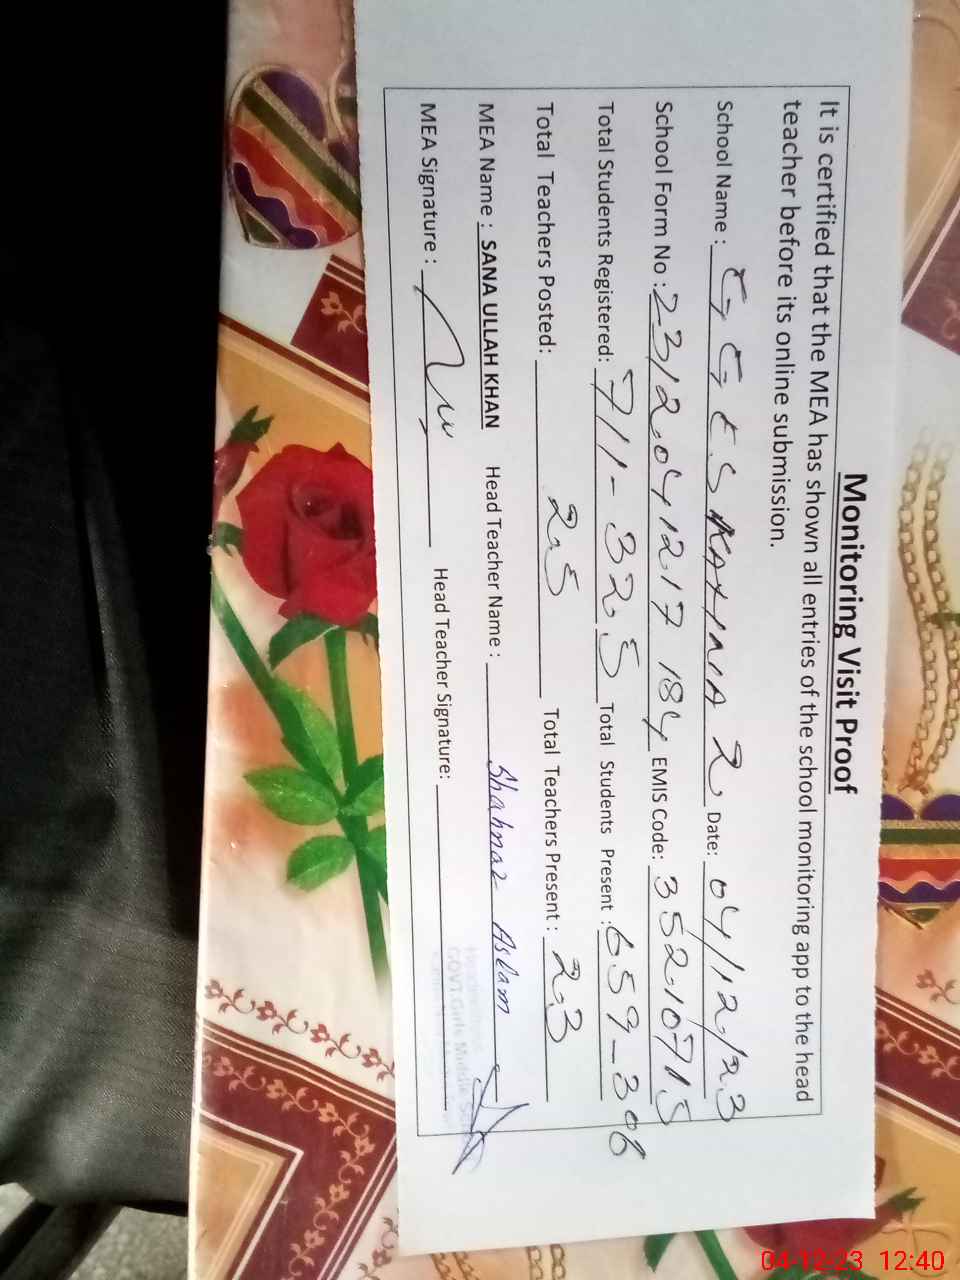 Monitoring Visit Proof
It is certified that the MEA has shown all entries of the school monitoring app to the head
teacher before its online submission.
School Name : GGES 2 Date: 04/12/23
School Form No : 2312041217184 EMIS Code: 35210715
Total Students Registered: 711-325 Total Students Present : 659-306
Total Teachers Posted: 25 Total Teachers Present : 23
MEA Name : SANA ULLAH KHAN Head Teacher Name : Shahnaz Aslam
MEA Signature : Head Teacher Signature:
GOVT. Girls Middle
04-12-23 12:40